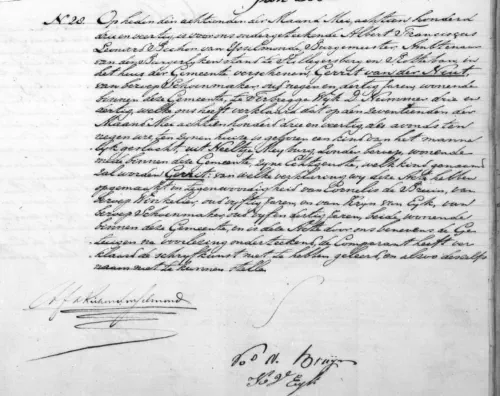 N. 28. Op heden den achttienden der Maand Mei, achttien honderd
drie en veertig, is voor ons ondergeteekende Albert Franciscus
Leonard van IJsselmonde, Burgemeester, Ambtenaar
van den Burgerlijken stand te Hillegersberg en Rotteban, in
het huis der Gemeente verschenen, Gerrit van der Hout,
van beroep Schoenmaker, oud negen en dertig Jaren, wonende
binnen deze Gemeente, Wijk D Nummer drie en
veertig, welke ons heeft verklaard dat op den zeventienden der
Maand Mei achttien honderd drie en veertig, des avonds ten
negen ure ten zijnen huize is geboren een Kind van het manne
lijk geslacht, uit Neeltje Muburg, zonder beroep, wonende
mede binnen deze Gemeente, zijne Echtgenote, welk kind genaamd
zal worden Gerrit, van welke verklaring wij deze Acte hebben
opgemaakt in tegenwoordigheid van Cornelis de Bruin, van
beroep Winkelier, oud vijftig Jaren, en van Krijn van Eijk, van
beroep Schoenmaker, oud vijf en dertig Jaren, beide wonende
binnen deze Gemeente, en is deze Acte door ons benevens de Ge-
tuigen na voorlezing onderteekend, de Comparant heeft ver
klaard de schrijfkunst niet te hebben geleerd, en alzoo deszelfs
naam niet te kunnen stellen
d. Bruijn
K. v. Eijk